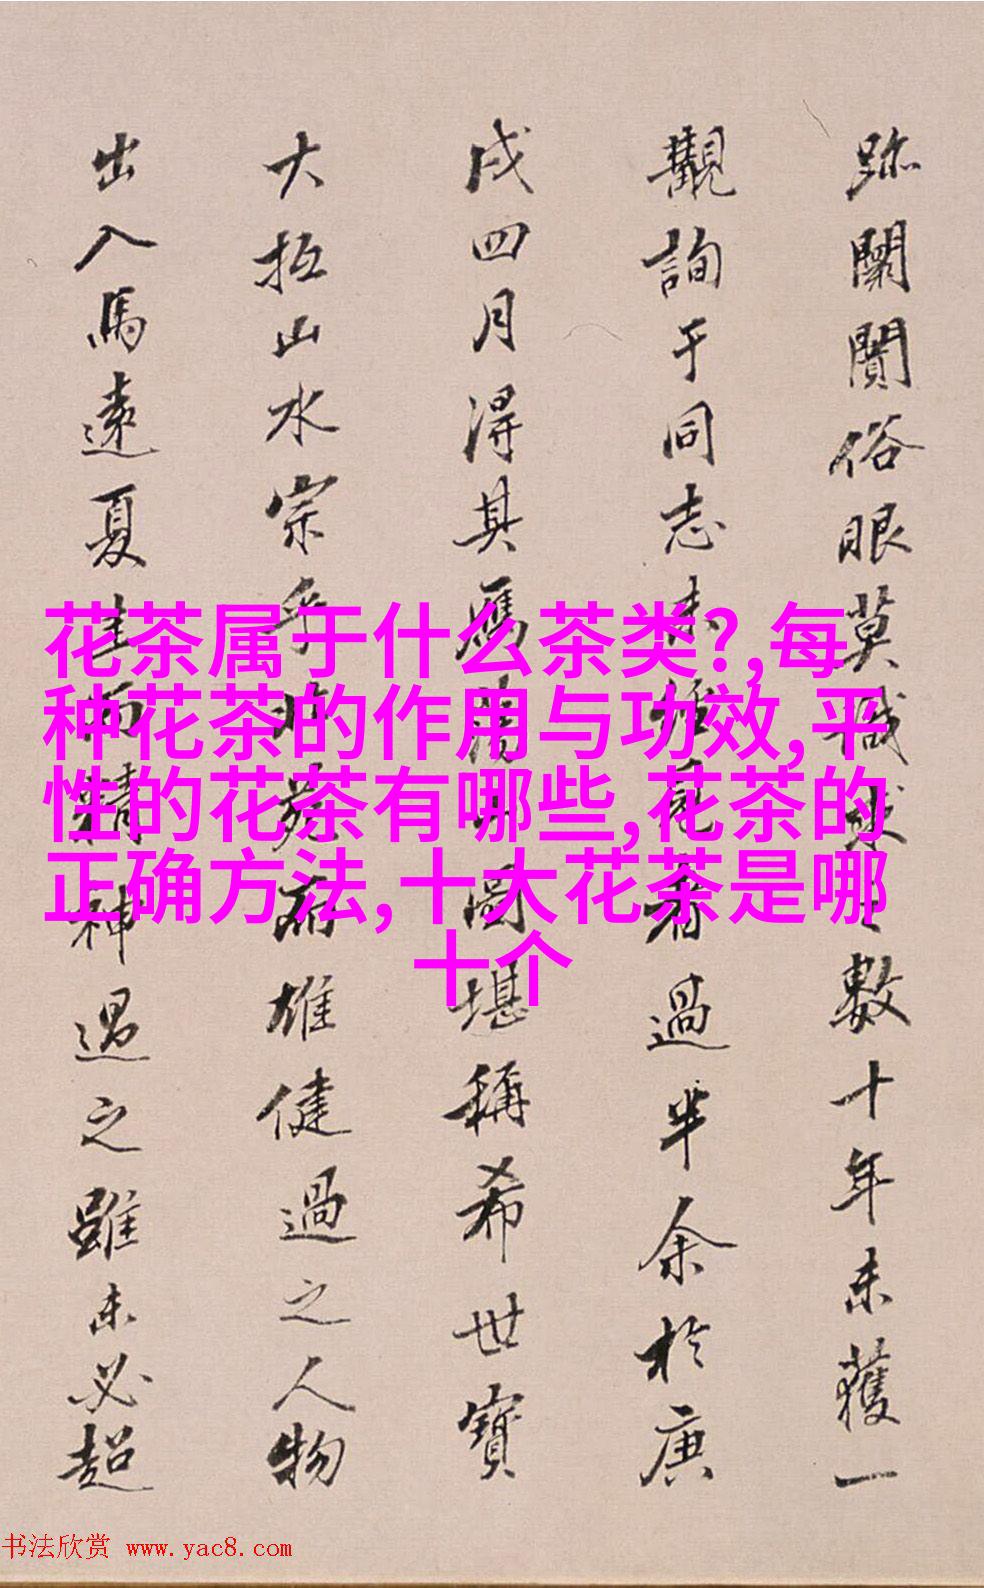 跡闌闠俗眼莫識求之數十年未獲一
觀詢于同志未
者過半余於庚
戌四月得其馮
圖堪稱希世寶
大抵山水宗乎
而雄健過之人物
出入馬遠夏珪而精神過之雖未必超
花茶属于什么茶类?,每
种花茶的作用与功效,平
性的花茶有哪些,花茶的
正确方法,十大花茶是哪
十个
书法欣赏 www.yac8.com